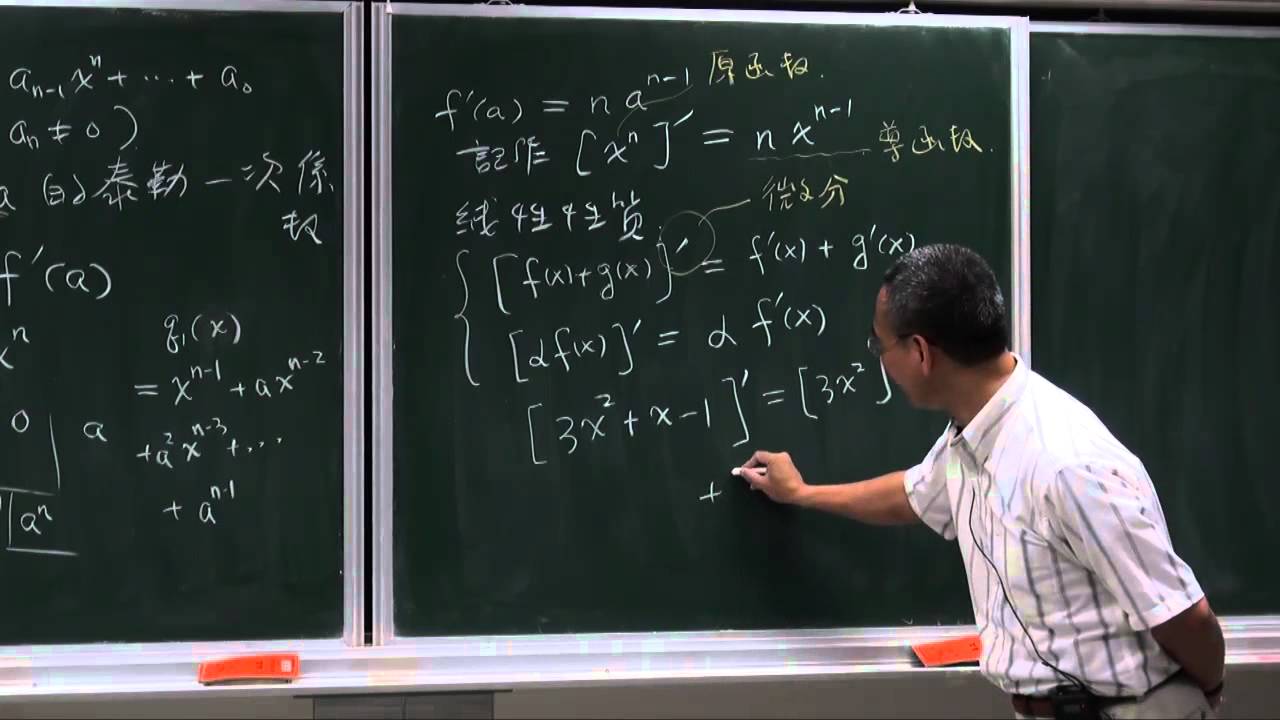 aₙ₋₁xⁿ + ⋯ + a₀
aₙ ≠ 0 )
a 的泰勒一次係
数
f'(a)
xⁿ
q₁(x)
= xⁿ⁻¹ + axⁿ⁻²
0 a
+ a²xⁿ⁻³ + ⋯
+ aⁿ⁻¹
aⁿ
f'(a) = n aⁿ⁻¹ 原函数.
記作 [xⁿ]' = n xⁿ⁻¹ 导函数.
线性性质. 微分
[f(x)+g(x)]' = f'(x) + g'(x)
[αf(x)]' = α f'(x)
[3x² + x − 1]' = [3x²]
+